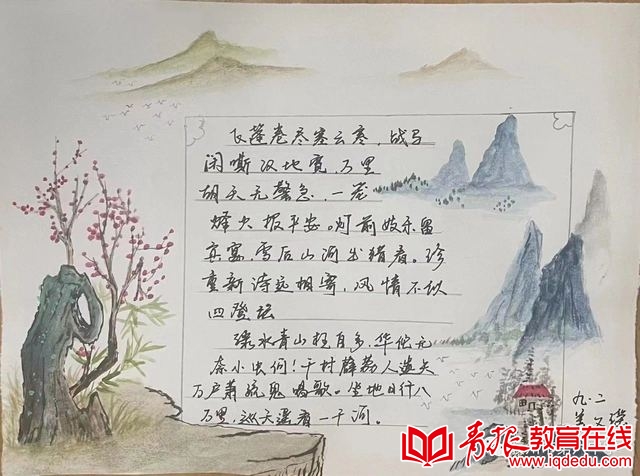 飞蓬卷尽塞云寒,战马
闲嘶汉地宽,万里
胡天无警急,一卷
烽火报平安。灯前妓乐留
宾宴,雪后山河出猎看。珍
重新诗远相寄,风情不似
四登坛
绿水青山枉自多,华佗无
奈小虫何!千村薜荔人遗矢
万户萧疏鬼唱歌。坐地日行八
万里,巡天遥看一千河。
九.二
青报教育在线
www.iqdedu.com